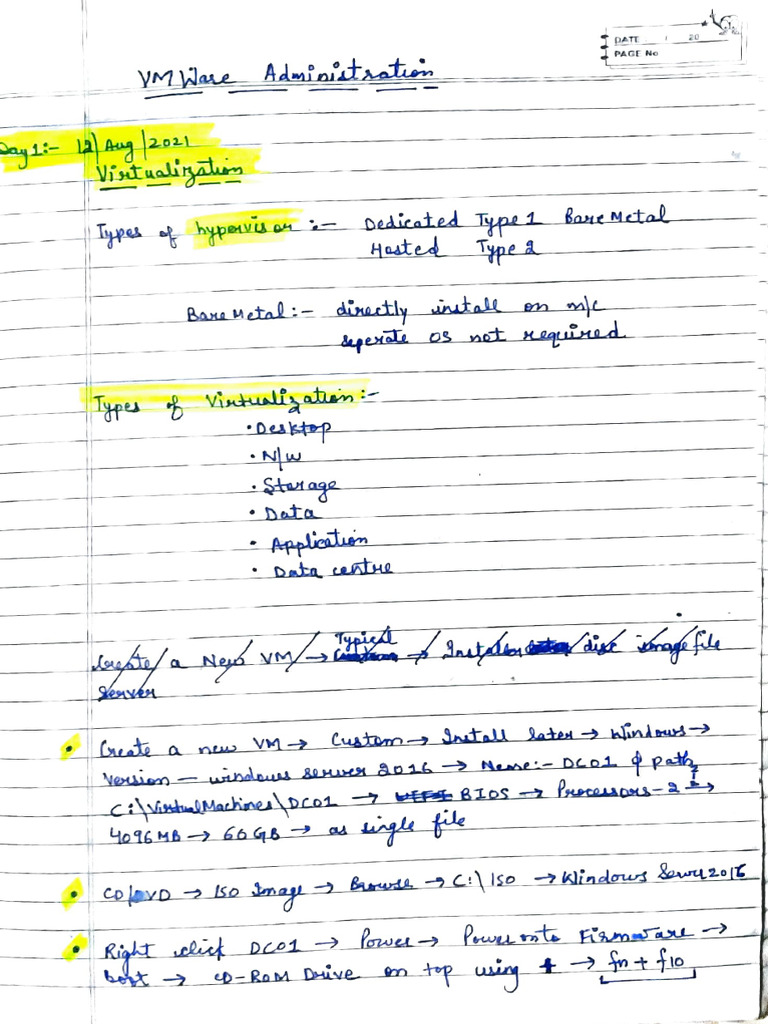 DATE 20
PAGE No
VM Ware Administration
Day 1:- 12/Aug/2021
Virtualization
Types of hypervisor :- Dedicated Type 1 Bare Metal
Hosted Type 2
Bare Metal :- directly install on m/c
seperate OS not required
Types of Virtualization :-
• Desktop
• N/W
• Storage
• Data
• Application
• Data centre
Typical
Create a New VM → Custom → Install disc image file
server
• Create a new VM → Custom → Install later → Windows →
Version — windows server 2016 → Name:- DC01 & path
C:\VirtualMachines\DC01 → UEFI BIOS → Processors - 2 →
4096 MB → 60 GB → as single file
• CD/DVD → ISO Image → Browse → C:\ISO → Windows Server 2016
• Right click DC01 → Power → Power on to Firmware →
boot → CD-ROM Drive on top using + → fn + f10